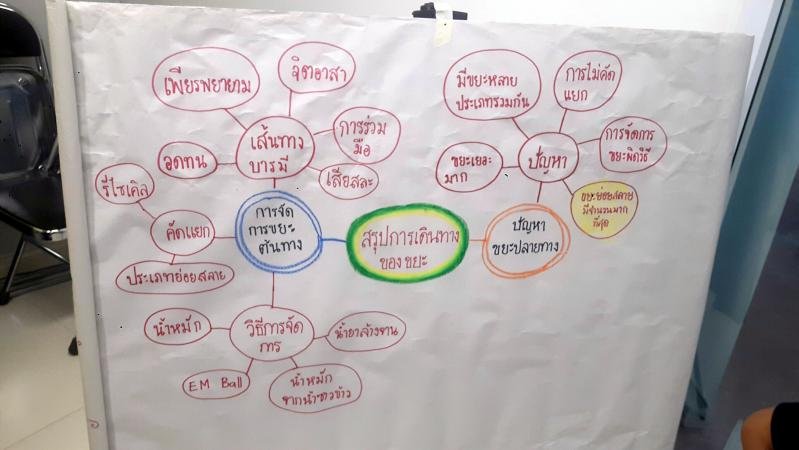 เพียรพยายาม
จิตอาสา
เส้นทาง
บารมี
การร่วม
มือ
อดทน
เสียสละ
รีไซเคิล
คัดแยก
ประเภทย่อยสลาย
การจัด
การขยะ
ต้นทาง
วิธีการจัด
การ
น้ำหมัก
น้ำยาล้างจาน
EM Ball
น้ำหมัก
จากน้ำซาวข้าว
สรุปการเดินทาง
ของขยะ
ปัญหา
ขยะปลายทาง
ปัญหา
มีขยะหลาย
ประเภทรวมกัน
การไม่คัด
แยก
การจัดการ
ขยะผิดวิธี
ขยะเยอะ
มาก
ขยะย่อยสลาย
มีจำนวนมาก
ที่สุด